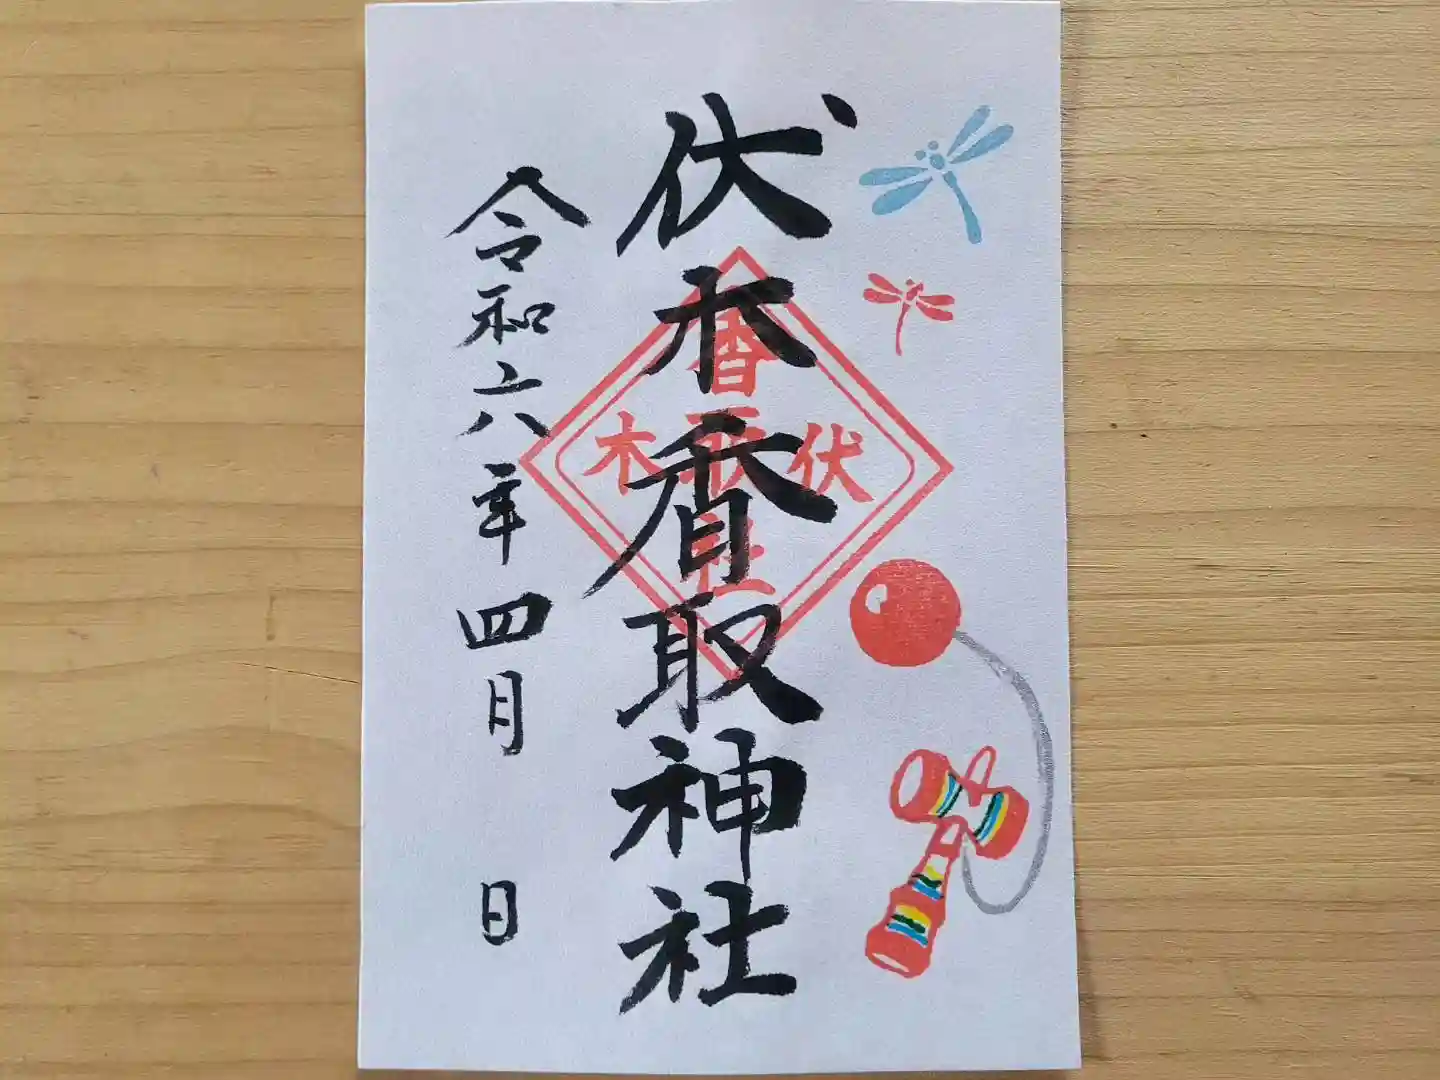 伏木香取神社
令和六年四月　日
香取社
伏木